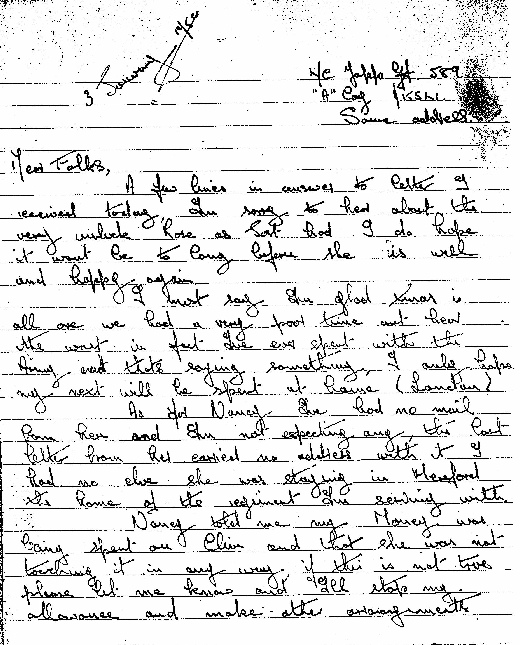 3 January
L/C Japps G 589
"A" Coy 1 KSLI
Same address
Dear Folks,
A few lines in answer to letter I
received today, Im sorry to hear about the
very unlucky Rose as Gort had I do hope
it wont be to long before she is well
and happy again
I must say Im glad Xmas is
all over we had a very poor time out hear
the worst in fact Ive ever spent with the
Army and thats saying something, I only hope
my next will be spent at home (London)
As for Nancy Ive had no mail
from her and Im not expecting any, the last
letter from her carried no address with it I
had no idea she was staying in Hereford
the home of the regiment Im serving with.
Nancy told me my Money was
being spent on Clive and that she was not
touching it in any way. if this is not true
please let me know and I'll stop my
allowance and make other arrangements